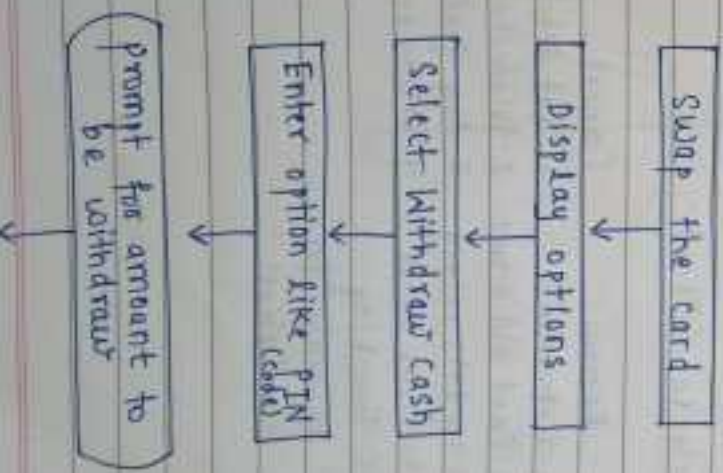 Swap the card
Display options
Select Withdraw cash
Enter option like PIN
(code)
prompt for amount to
be withdraw